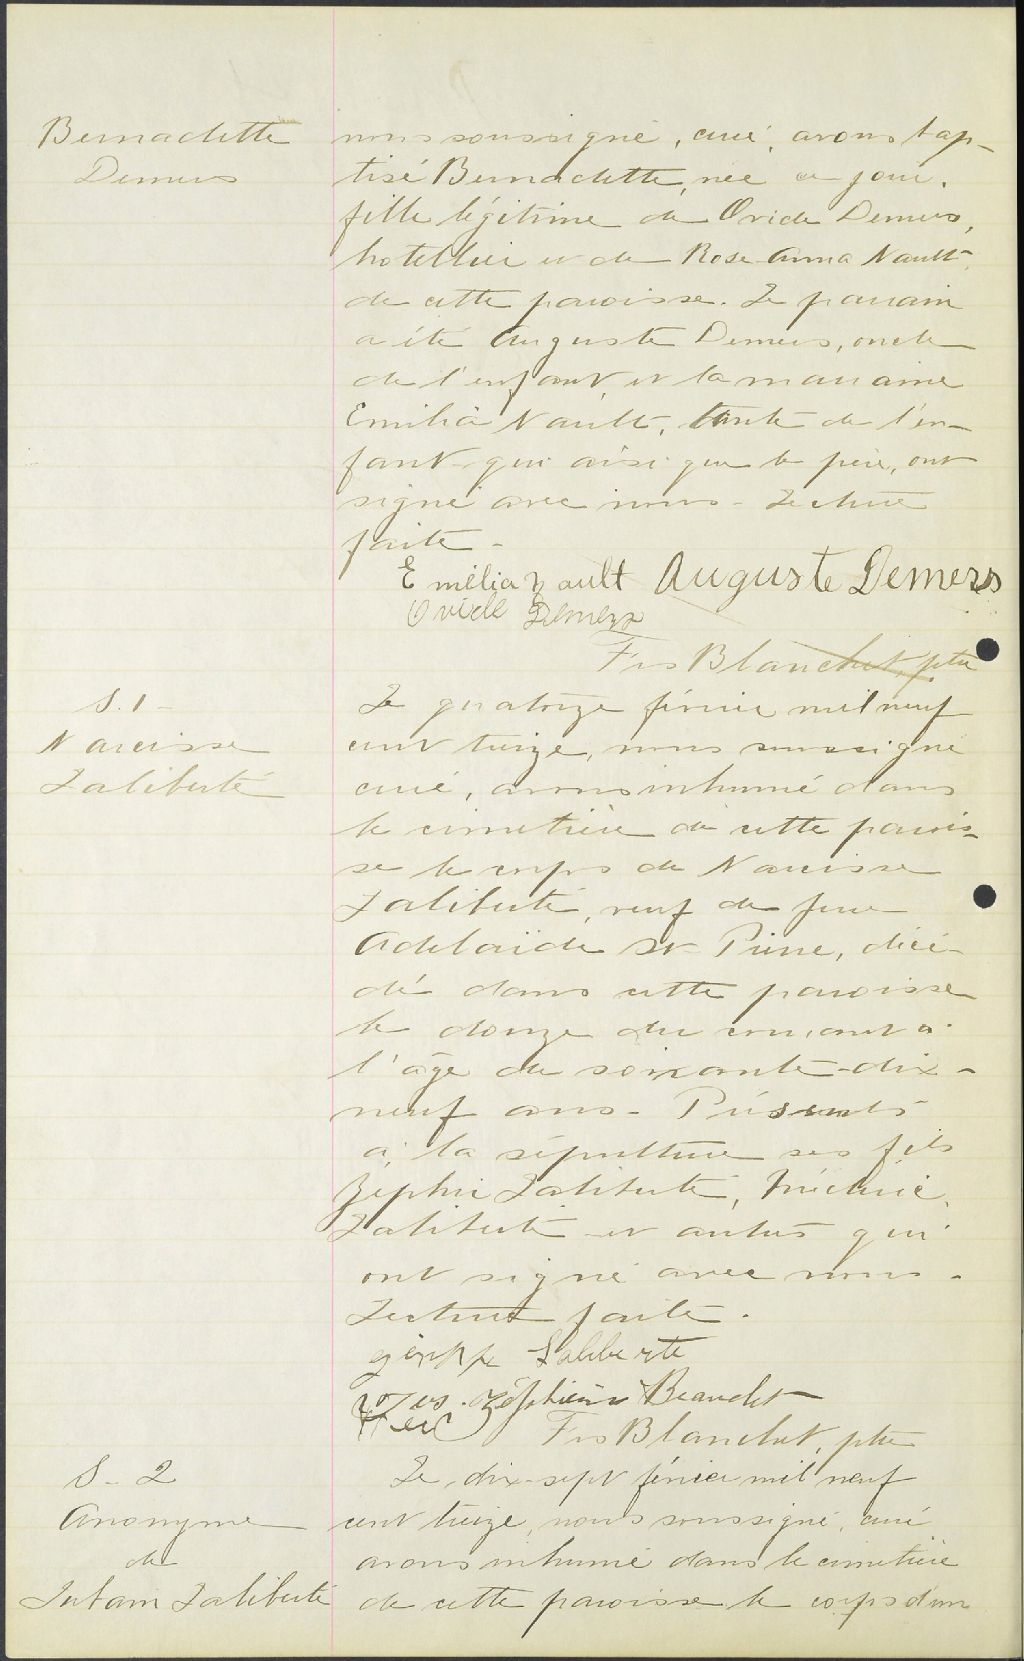 Bernadette
Demers
nous soussigné, curé, avons bap-
tisé Bernadette, née ce jour,
fille légitime de Ovide Demers,
hotellier et de Rose-Anna Nault
de cette paroisse. Le parrain
a été Auguste Demers, oncle
de l'enfant, et la marraine
Emilia Nault, tante de l'en-
fant qui aisi que le père, ont
signé avec nous - Lecture
faite -
Emélia Nault Auguste Demers
Ovide Demers
Frs Blanchet, ptre
S. 1 -
Narcisse
Laliberté
Le quatorze février mil neuf
cent treize, nous soussigné
curé, avons inhumé dans
le cimetière de cette parois-
se le corps de Narcisse
Laliberté, veuf de feue
Adelaïde St Pierre, décé-
dé dans cette paroisse
le douze du courant à
l'âge de soixante-dix-
neuf ans - Présents
à la sépulture ses fils
Zéphir Laliberté,
Laliberté et autres qui
ont signé avec nous -
Lecture faite .
Laliberte
Zéphirin Beaudet
Frs Blanchet, ptre
S - 2
Anonyme
de
Laliberté
Le dix-sept février mil neuf
cent treize, nous soussigné, curé
avons inhumé dans le cimetière
de cette paroisse le corps d'un